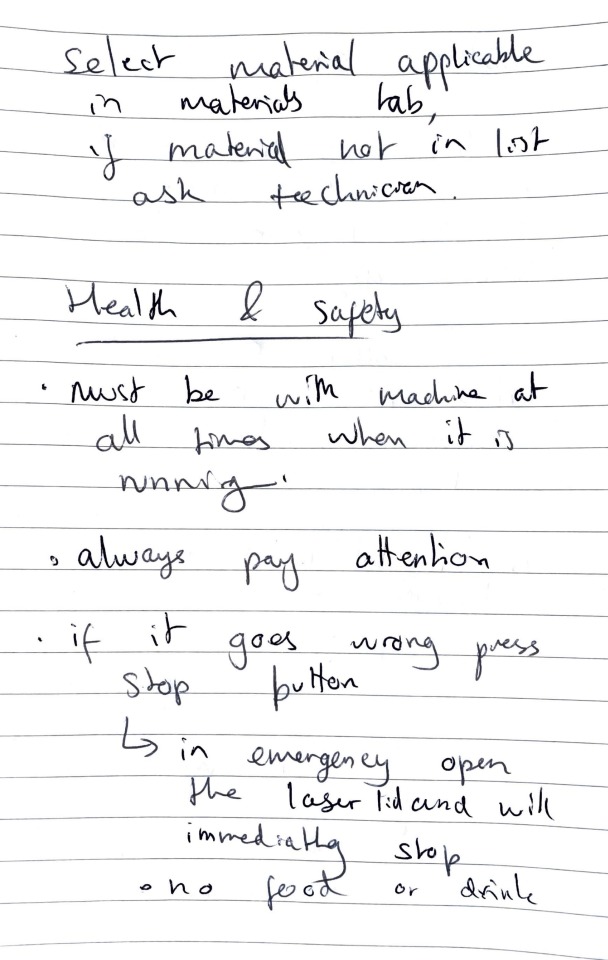 Select material applicable
in materials tab,
if material not in list
ask technician.
Health & safety
• must be with machine at
all times when it is
running.
• always pay attention
• if it goes wrong press
stop button
↳ in emergency open
the laser lid and will
immediatly stop
• no food or drink